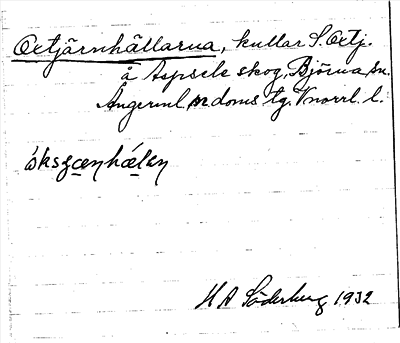 Oxtjärnhällarna, kullar S. Oxtj.
å Aspsele skog, Björna sn.
Ångerml. n doms tg. Vnorrl. l.
H A Söderberg 1932